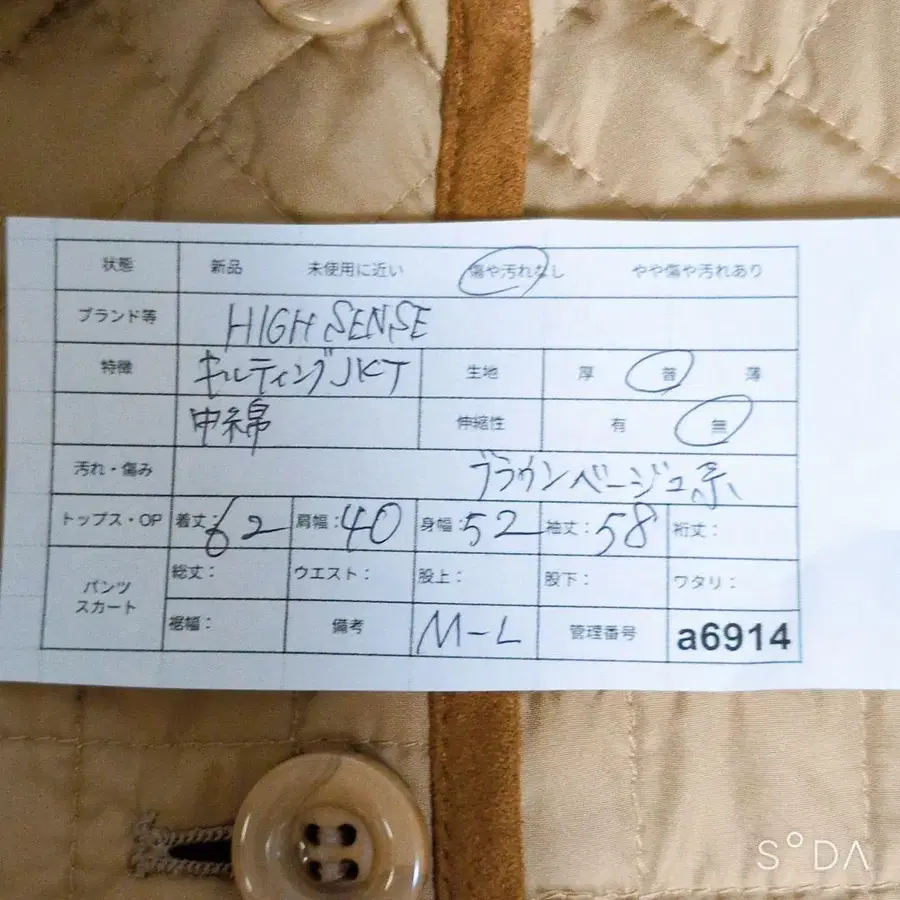 状態 新品 未使用に近い 傷や汚れなし やや傷や汚れあり
ブランド等 HIGH SENSE
特徴 キルティングJKT 生地 厚 普 薄
中綿 伸縮性 有 無
汚れ・傷み ブラウンベージュ系
トップス・OP 着丈:62 肩幅:40 身幅:52 袖丈:58 裄丈:
パンツ スカート 総丈: ウエスト: 股上: 股下: ワタリ:
裾幅: 備考 M-L 管理番号 a6914
SODA